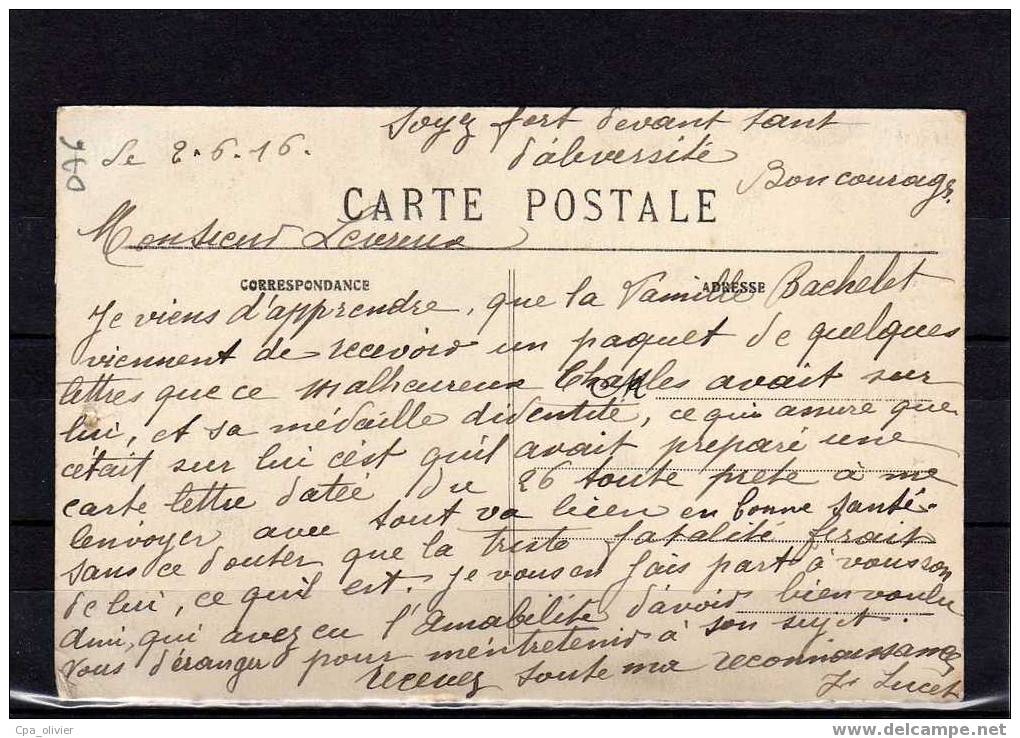 960
Soyez fort devant tant
Le 2.6.16. d'aleversité
Bon courage.
CARTE POSTALE
Monsieur Levereux
CORRESPONDANCE ADRESSE
Je viens d'apprendre, que la Famille Bachelet
viennent de recevoir un paquet de quelques
lettres que ce malheureux Charles avait sur
lui, et sa médaille didentité, ce qui assure que
c'était sur lui c'est qu'il avait preparé une
carte lettre datée du 26 toute prete à me
l'envoyer avec tout va bien en bonne santé.
sans ce douter que la triste fatalité ferait
de lui, ce qu'il est. Je vous en fais part à vous son
ami, qui avez eu l'amabilité d'avoir bien voulu
vous déranger pour m'entretenir à son sujet.
recevez toute ma reconnaissance
Jr Lucet
Cpa_olivier
www.delcampe.net